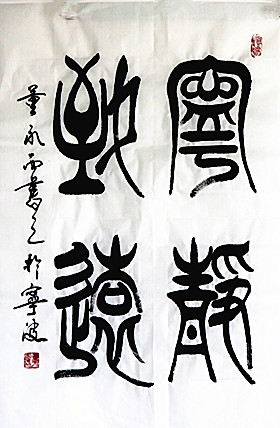 寧靜
致遠
董永西書之於寧波